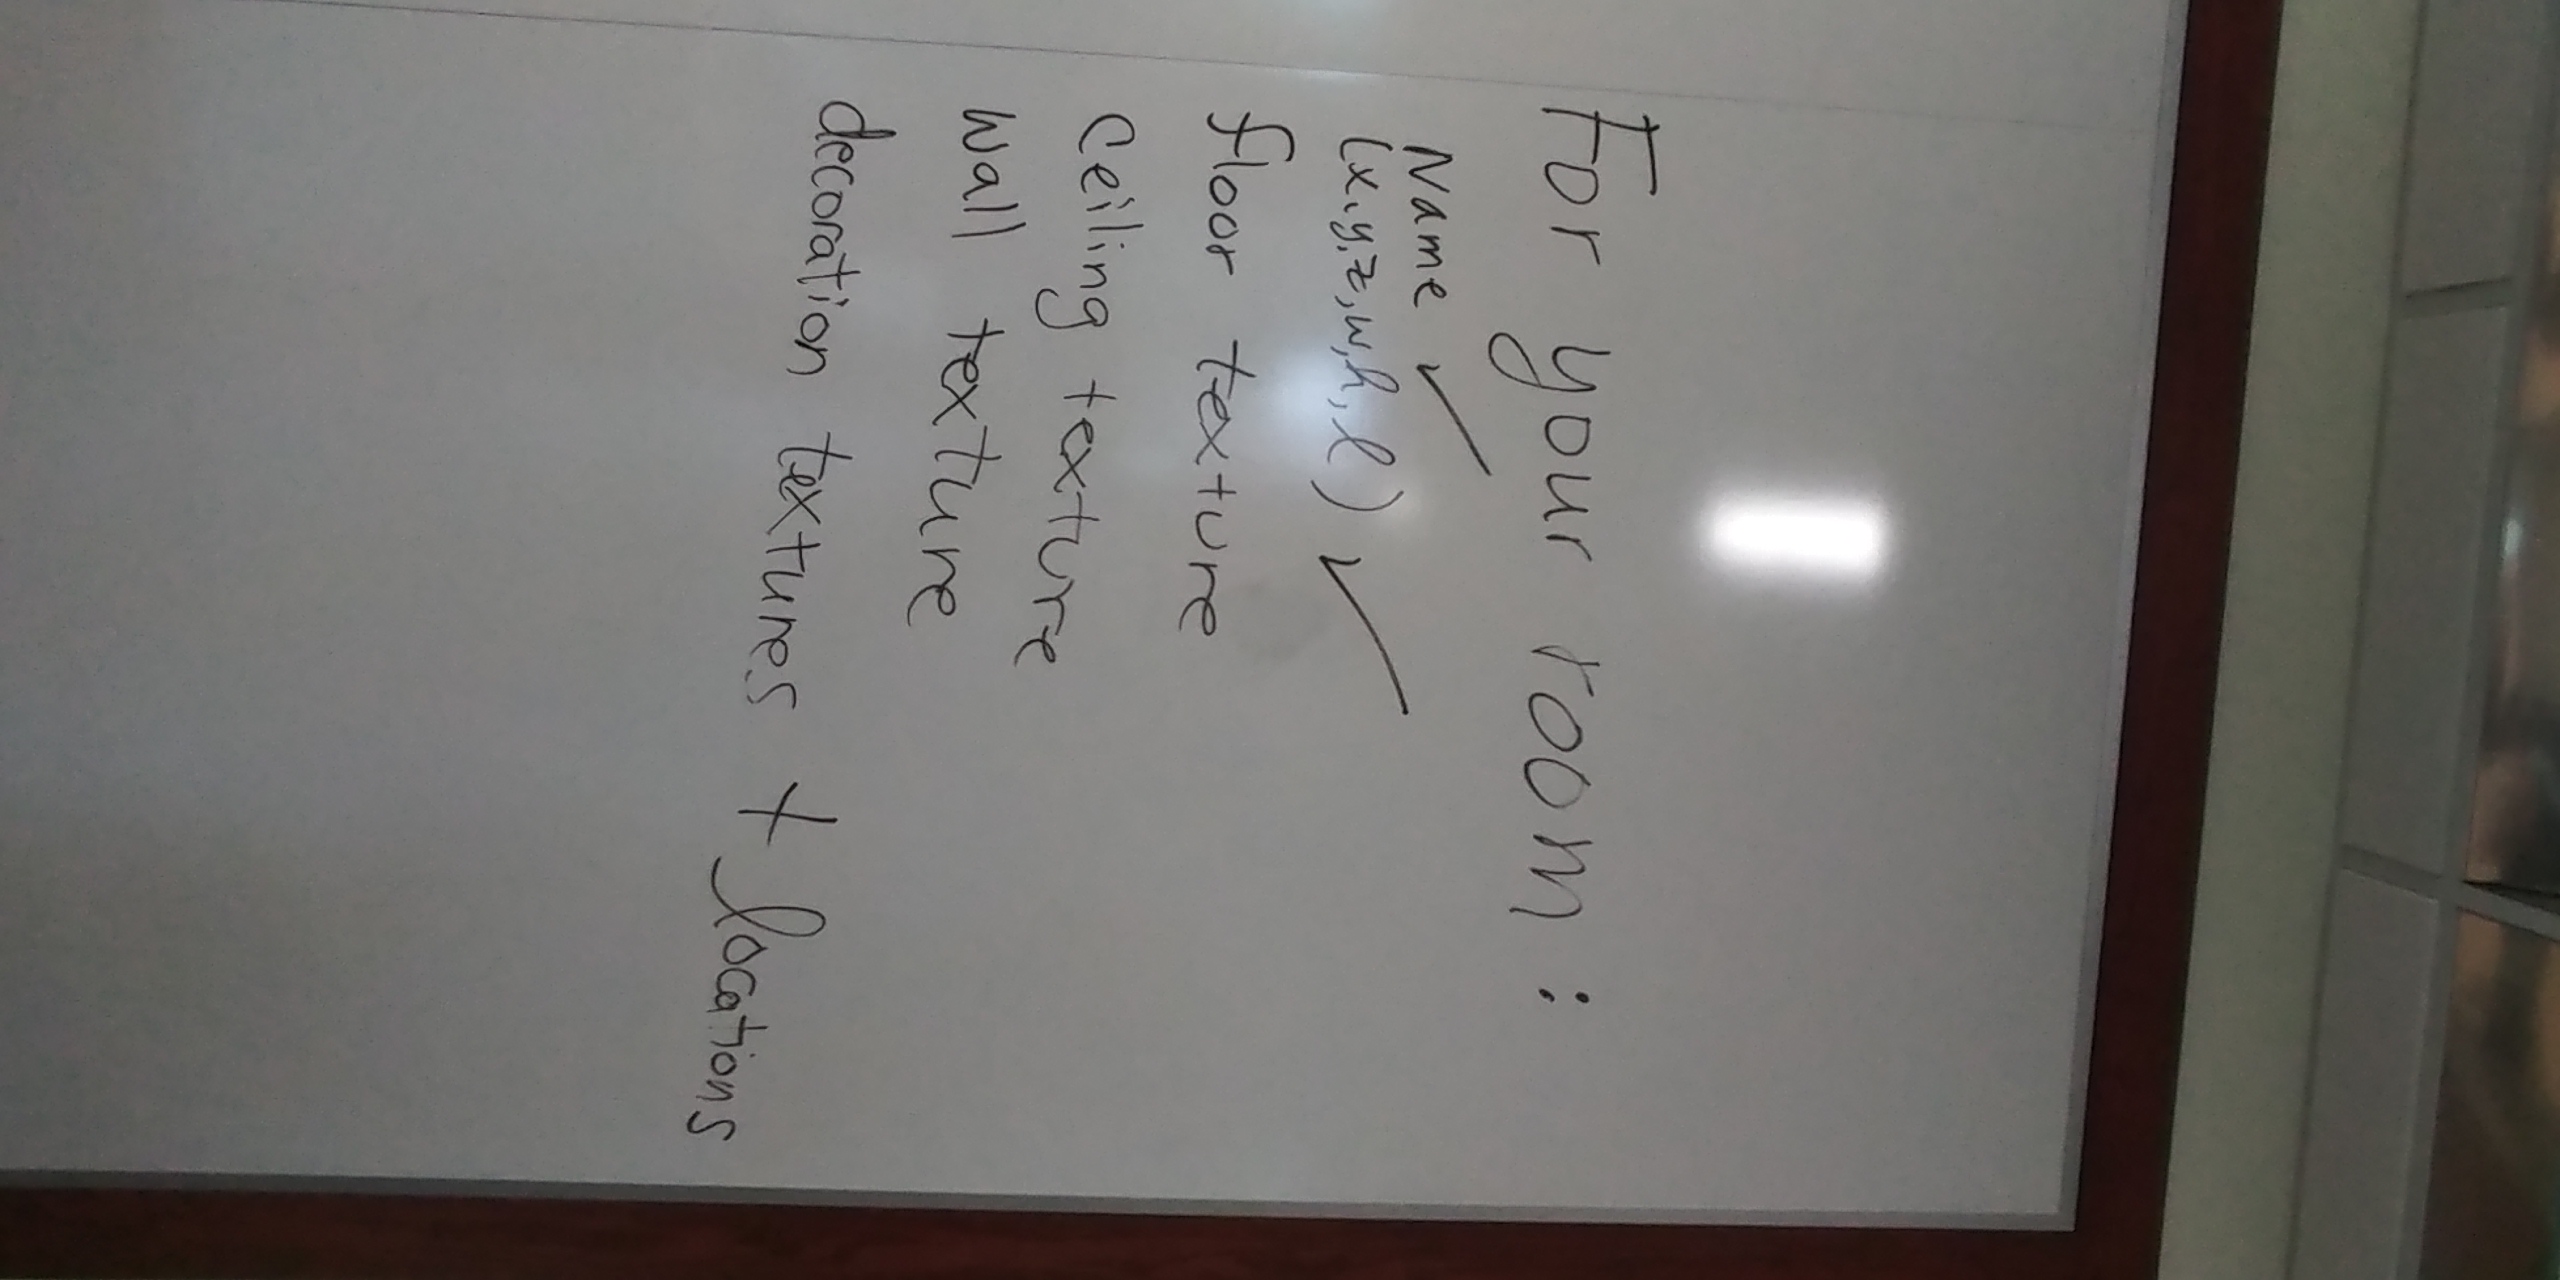 For your room:
Name ✓
(x,y,z,w,h,l) ✓
floor texture
Ceiling texture
Wall texture
decoration textures + locations